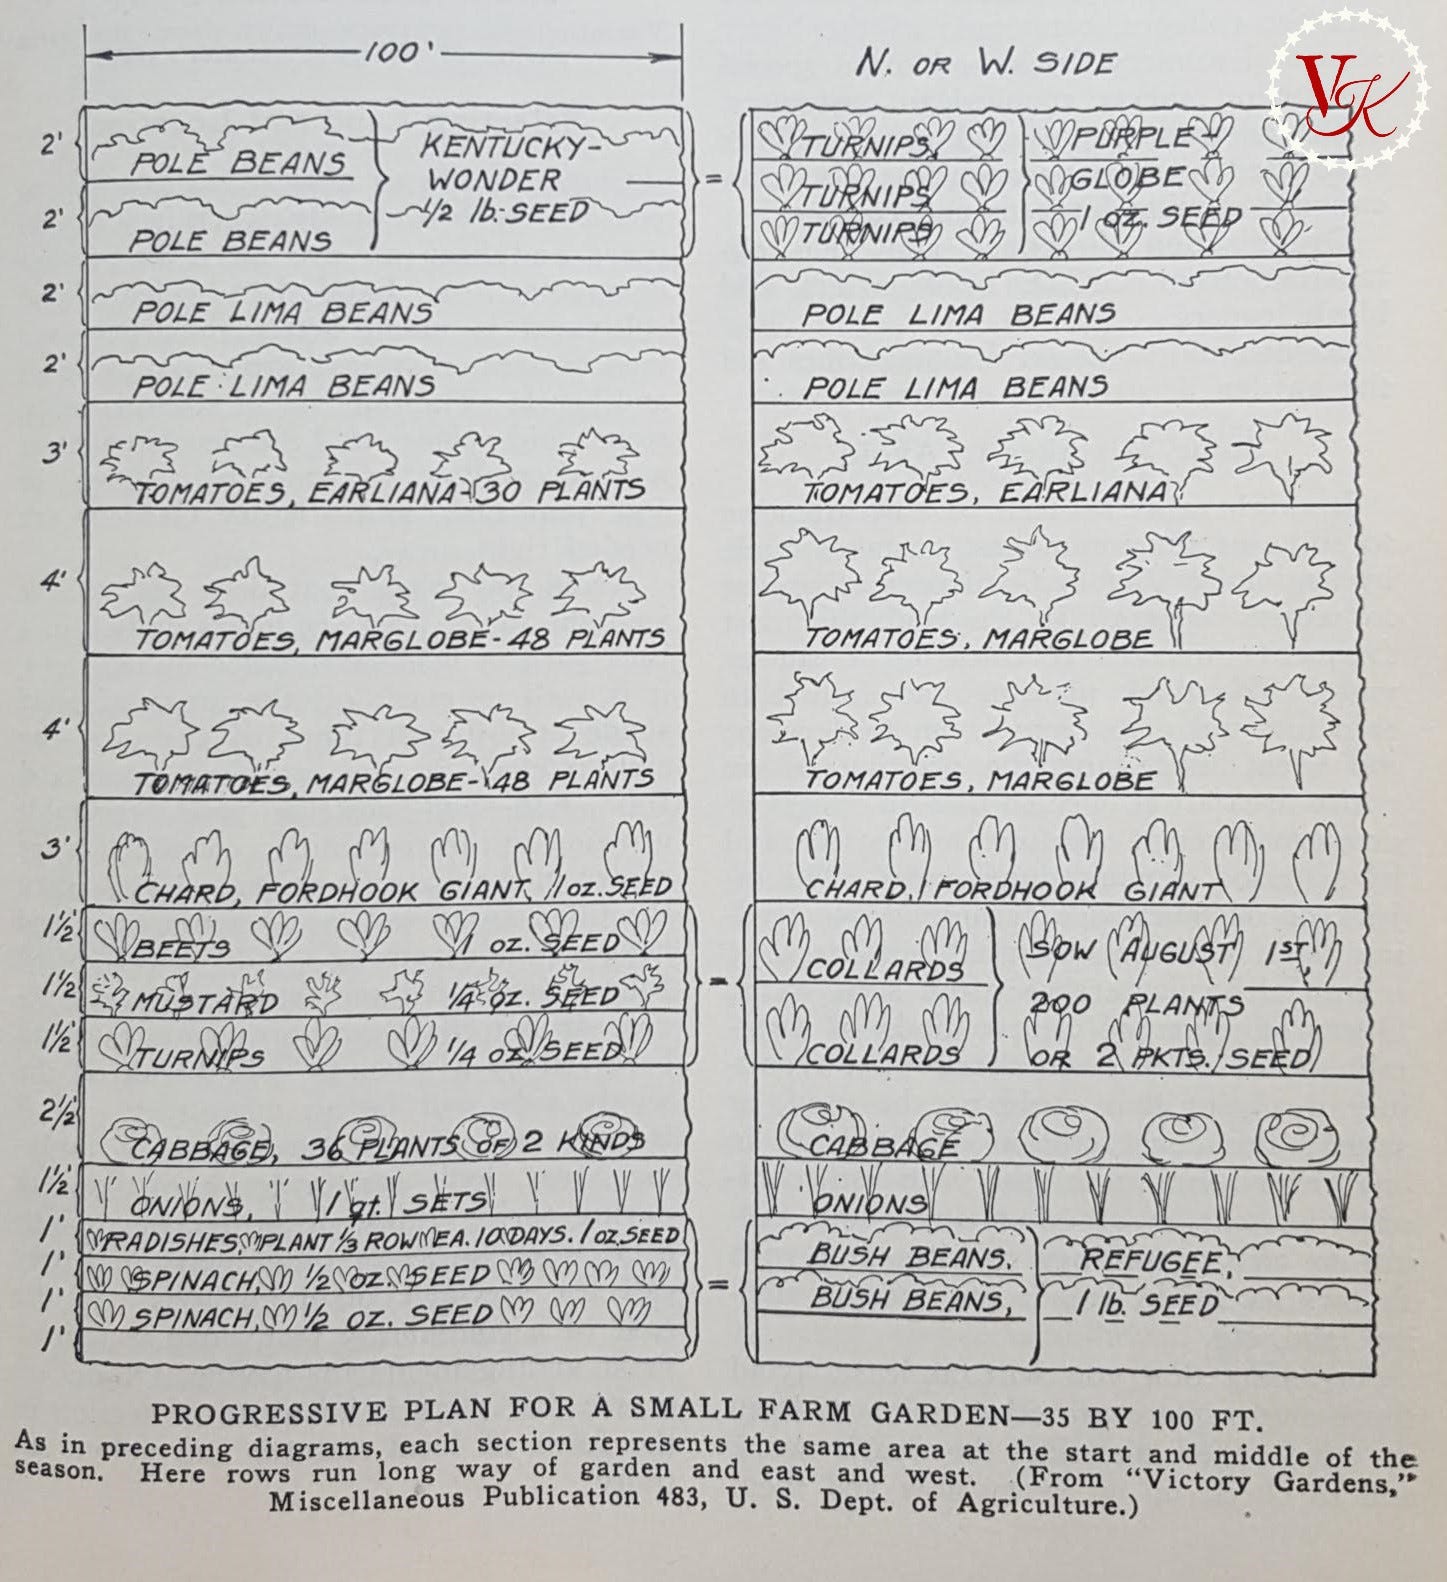 100'
N. OR W. SIDE
VK
2'
POLE BEANS
2'
POLE BEANS
KENTUCKY-
WONDER
1/2 lb. SEED
=
TURNIPS
TURNIPS
TURNIPS
PURPLE-
GLOBE
1 OZ. SEED
2'
POLE LIMA BEANS
POLE LIMA BEANS
2'
POLE LIMA BEANS
POLE LIMA BEANS
3'
TOMATOES, EARLIANA-30 PLANTS
TOMATOES, EARLIANA
4'
TOMATOES, MARGLOBE-48 PLANTS
TOMATOES, MARGLOBE
4'
TOMATOES, MARGLOBE-48 PLANTS
TOMATOES, MARGLOBE
3'
CHARD, FORDHOOK GIANT, 1 oz. SEED
CHARD, FORDHOOK GIANT
1½'
BEETS 1 OZ. SEED
1½'
MUSTARD 1/4 OZ. SEED
1½'
TURNIPS 1/4 OZ. SEED
=
COLLARDS
COLLARDS
SOW AUGUST 1ST,
200 PLANTS
OR 2 PKTS. SEED
2½'
CABBAGE, 36 PLANTS OF 2 KINDS
CABBAGE
1½'
ONIONS, 1 qt. SETS
ONIONS
1'
RADISHES, PLANT ⅓ ROW EA. 10 DAYS. 1 OZ. SEED
1'
SPINACH, 1/2 OZ. SEED
1'
SPINACH, 1/2 OZ. SEED
1'
=
BUSH BEANS,
BUSH BEANS,
REFUGEE,
1 lb. SEED
PROGRESSIVE PLAN FOR A SMALL FARM GARDEN—35 BY 100 FT.
As in preceding diagrams, each section represents the same area at the start and middle of the
season. Here rows run long way of garden and east and west. (From "Victory Gardens,"
Miscellaneous Publication 483, U. S. Dept. of Agriculture.)